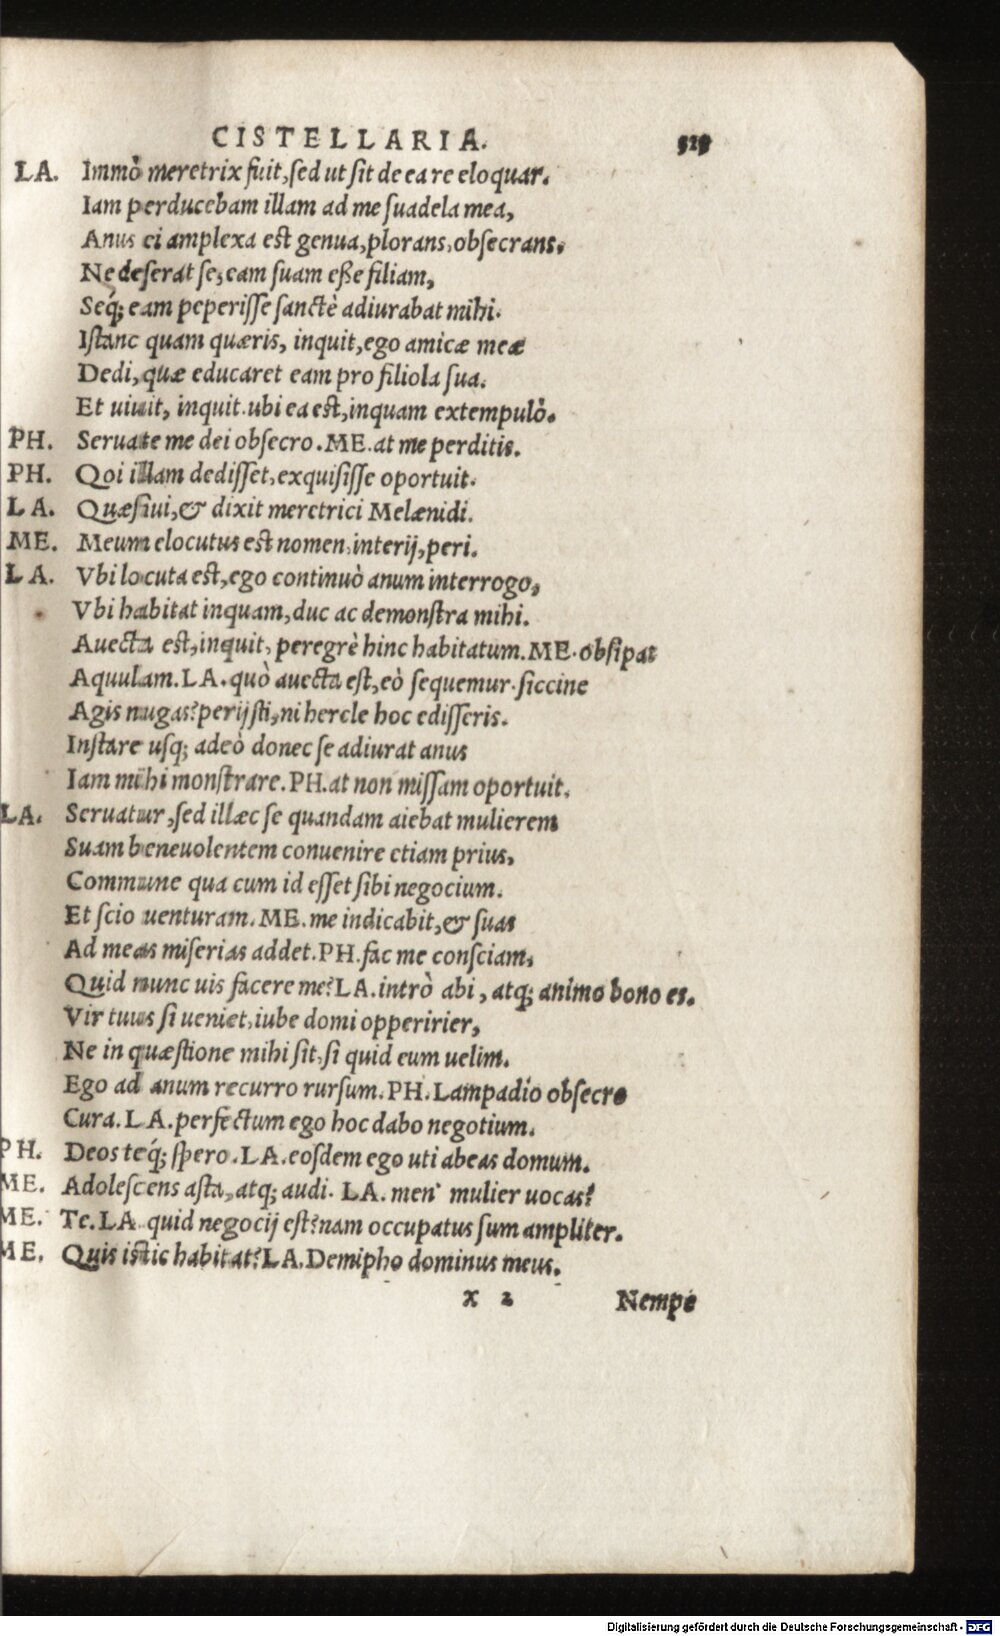 CISTELLARIA.
LA. Immò meretrix fuit, sed ut sit de ea re eloquar.
Iam perducebam illam ad me suadela mea,
Anus ei amplexa est genua, plorans, obsecrans,
Ne deserat se, eam suam eße filiam,
Seq́; eam peperisse sanctè adiurabat mihi.
Istanc quam quæris, inquit, ego amicæ meæ
Dedi, quæ educaret eam pro filiola sua.
Et uiuit, inquit. ubi ea est, inquam extempulò.
PH. Seruate me dei obsecro. ME. at me perditis.
PH. Qoi illam dedisset, exquisisse oportuit.
LA. Quæsiui, & dixit meretrici Melænidi.
ME. Meum elocutus est nomen, interij, peri.
LA. Vbi locuta est, ego continuò anum interrogo,
Vbi habitat inquam, duc ac demonstra mihi.
Auecta est, inquit, peregrè hinc habitatum. ME. obsipat
Aquulam. LA. quò auecta est, eò sequemur. siccine
Agis nugas? perijsti, ni hercle hoc edisseris.
Instare usq; adeò donec se adiurat anus
Iam mihi monstrare. PH. at non missam oportuit.
LA. Seruatur, sed illæc se quandam aiebat mulierem
Suam beneuolentem conuenire etiam prius,
Commune qua cum id esset sibi negocium.
Et scio uenturam. ME. me indicabit, & suas
Ad meas miserias addet. PH. fac me consciam,
Quid nunc uis facere me? LA. intrò abi, atq; animo bono es.
Vir tuus si ueniet, iube domi opperirier,
Ne in quæstione mihi sit, si quid eum uelim.
Ego ad anum recurro rursum. PH. Lampadio obsecro
Cura. LA. perfectum ego hoc dabo negotium.
PH. Deos teq́; spero. LA. eosdem ego uti abeas domum.
ME. Adolescens asta, atq; audi. LA. men' mulier uocas?
ME. Te. LA. quid negocij est? nam occupatus sum ampliter.
ME. Quis istic habitat? LA. Demipho dominus meus.
x 2 Nempe
Digitalisierung gefördert durch die Deutsche Forschungsgemeinschaft - DFG